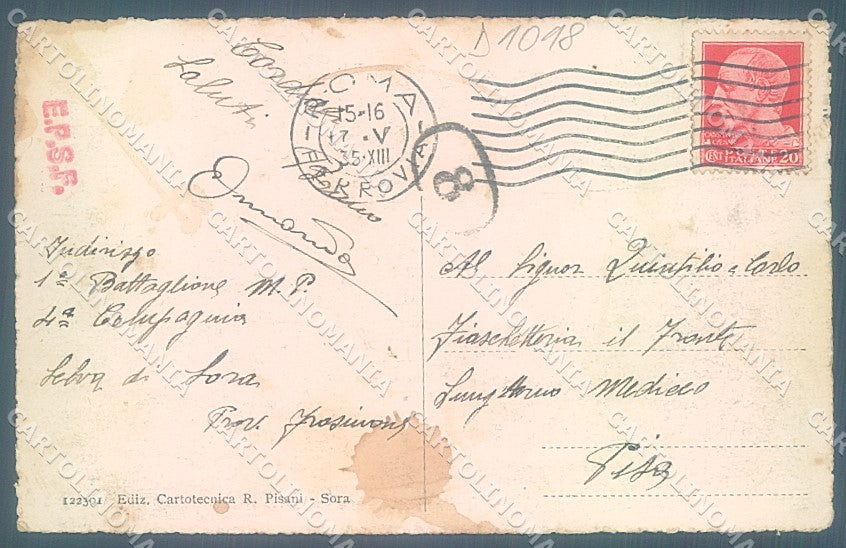 D1018
E.P.S.F.
Cordiali
Saluti
ROMA
15-16
7.V
35·XIII
FERROVIA
8
CENT ITALIANE 20
Armando
Indirizzo
1° Battaglione M. P.
4ª Compagnia
Selva di Sora
Prov. Frosinone
Al Signor Quintilio e Carlo
Fiaschetteria il Fronte
Lungarno Mediceo
Pisa
122391 Ediz. Cartotecnica R. Pisani - Sora
CARTOLINOMANIA